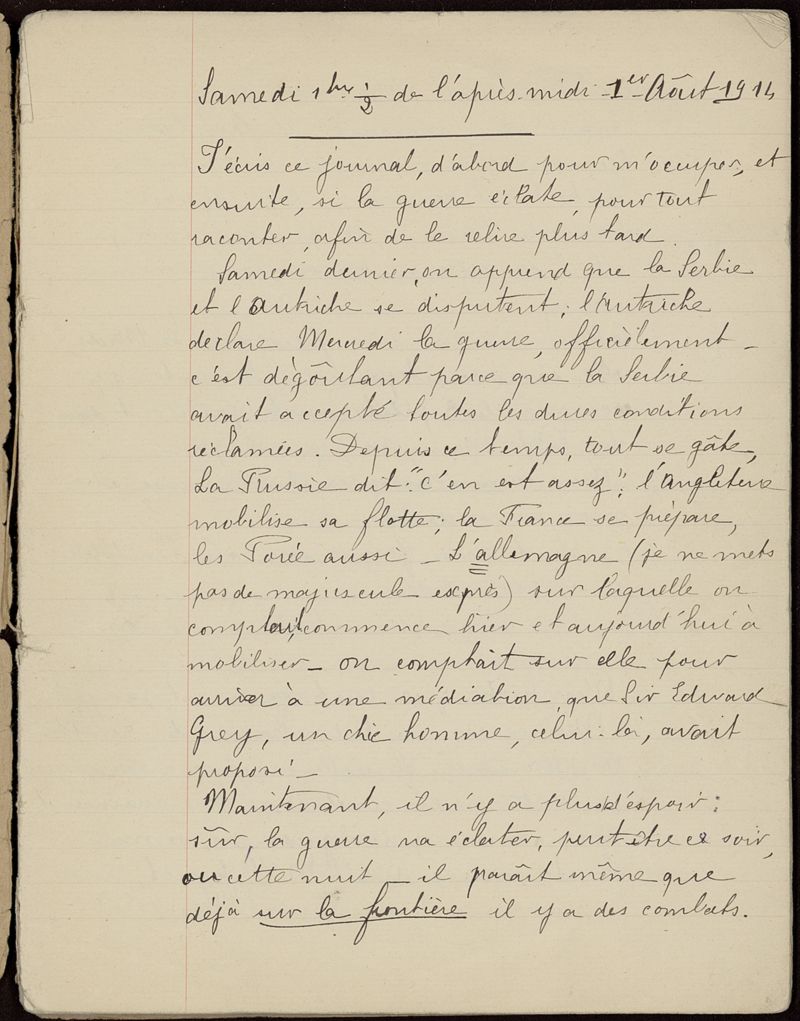 Samedi 1 hre 1/2 de l'après-midi - 1er Août 1914
J'écris ce journal, d'abord pour m'occuper, et
ensuite, si la guerre éclate, pour tout
raconter, afin de le relire plus tard.
Samedi dernier, on apprend que la Serbie
et l'Autriche se disputent ; l'Autriche
déclare Mercredi la guerre, officièlement -
c'est dégôutant parce que la Serbie
avait accepté toutes les dures conditions
réclamées. Depuis ce temps, tout se gâte,
La Russie dit : "c'en est assez" ; l'Angleterre
mobilise sa flotte ; la France se prépare,
les Porée aussi - L'allemagne (je ne mets
pas de majuscule exprès) sur laquelle on
comptait, commence hier et aujourd'hui à
mobiliser - on comptait sur elle pour
arriver à une médiation, que Sir Edward
Grey, un chic homme, celui-là, avait
proposé -
Maintenant, il n'y a plus d'espoir :
sûr, la guerre va éclater, peut être ce soir,
ou cette nuit - il paraît même que
déjà sur la frontière il y a des combats.